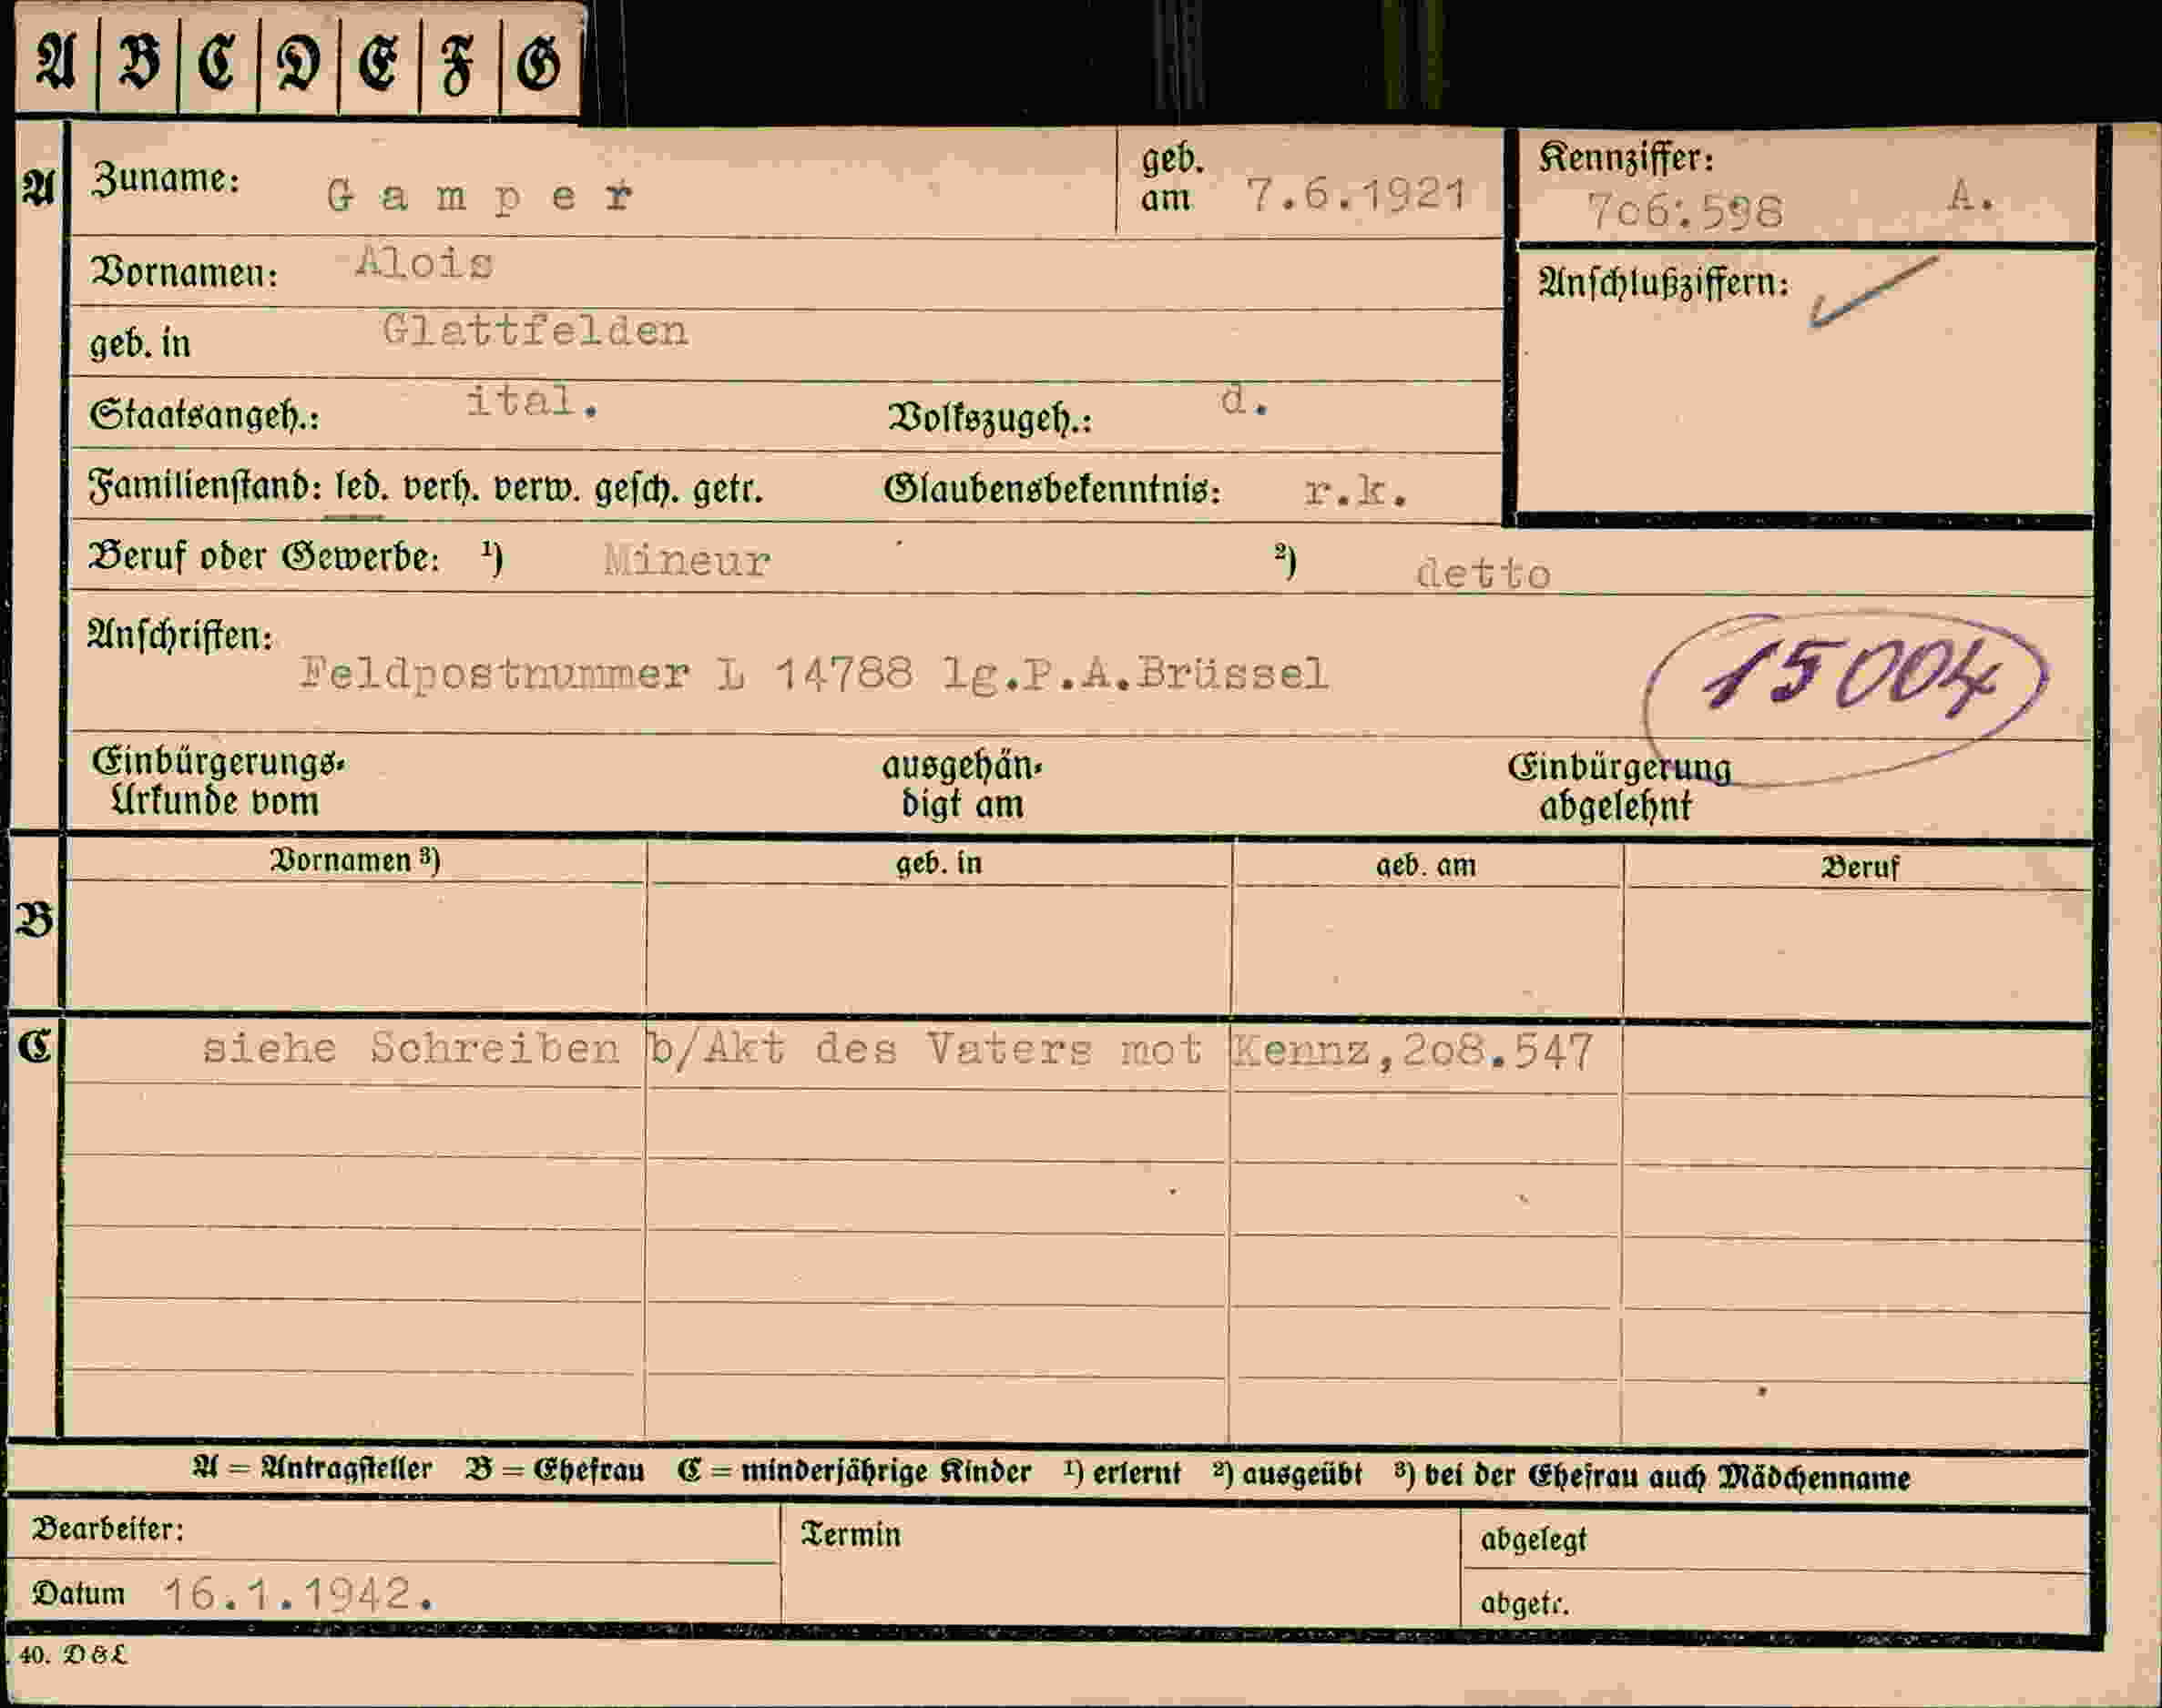 A B C D E F G
A Zuname: Gamper geb. am 7.6.1921 Kennziffer: 7o6:598 A.
Vornamen: Alois Anschlußziffern:
geb. in Glattfelden
Staatsangeh.: ital. Volkszugeh.: d.
Familienstand: led. verh. verw. gesch. getr. Glaubensbekenntnis: r.k.
Beruf oder Gewerbe: ¹) Mineur ²) detto
Anschriften: 15004
Feldpostnummer L 14788 lg.P.A.Brüssel
Einbürgerungs- ausgehän- Einbürgerung
Urkunde vom digt am abgelehnt
Vornamen ³) geb. in geb. am Beruf
B
C siehe Schreiben b/Akt des Vaters mot Kennz,2o8.547
A = Antragsteller B = Ehefrau C = minderjährige Kinder ¹) erlernt ²) ausgeübt ³) bei der Ehefrau auch Mädchenname
Bearbeiter: Termin abgelegt
Datum 16.1.1942. abgetr.
40. D&L